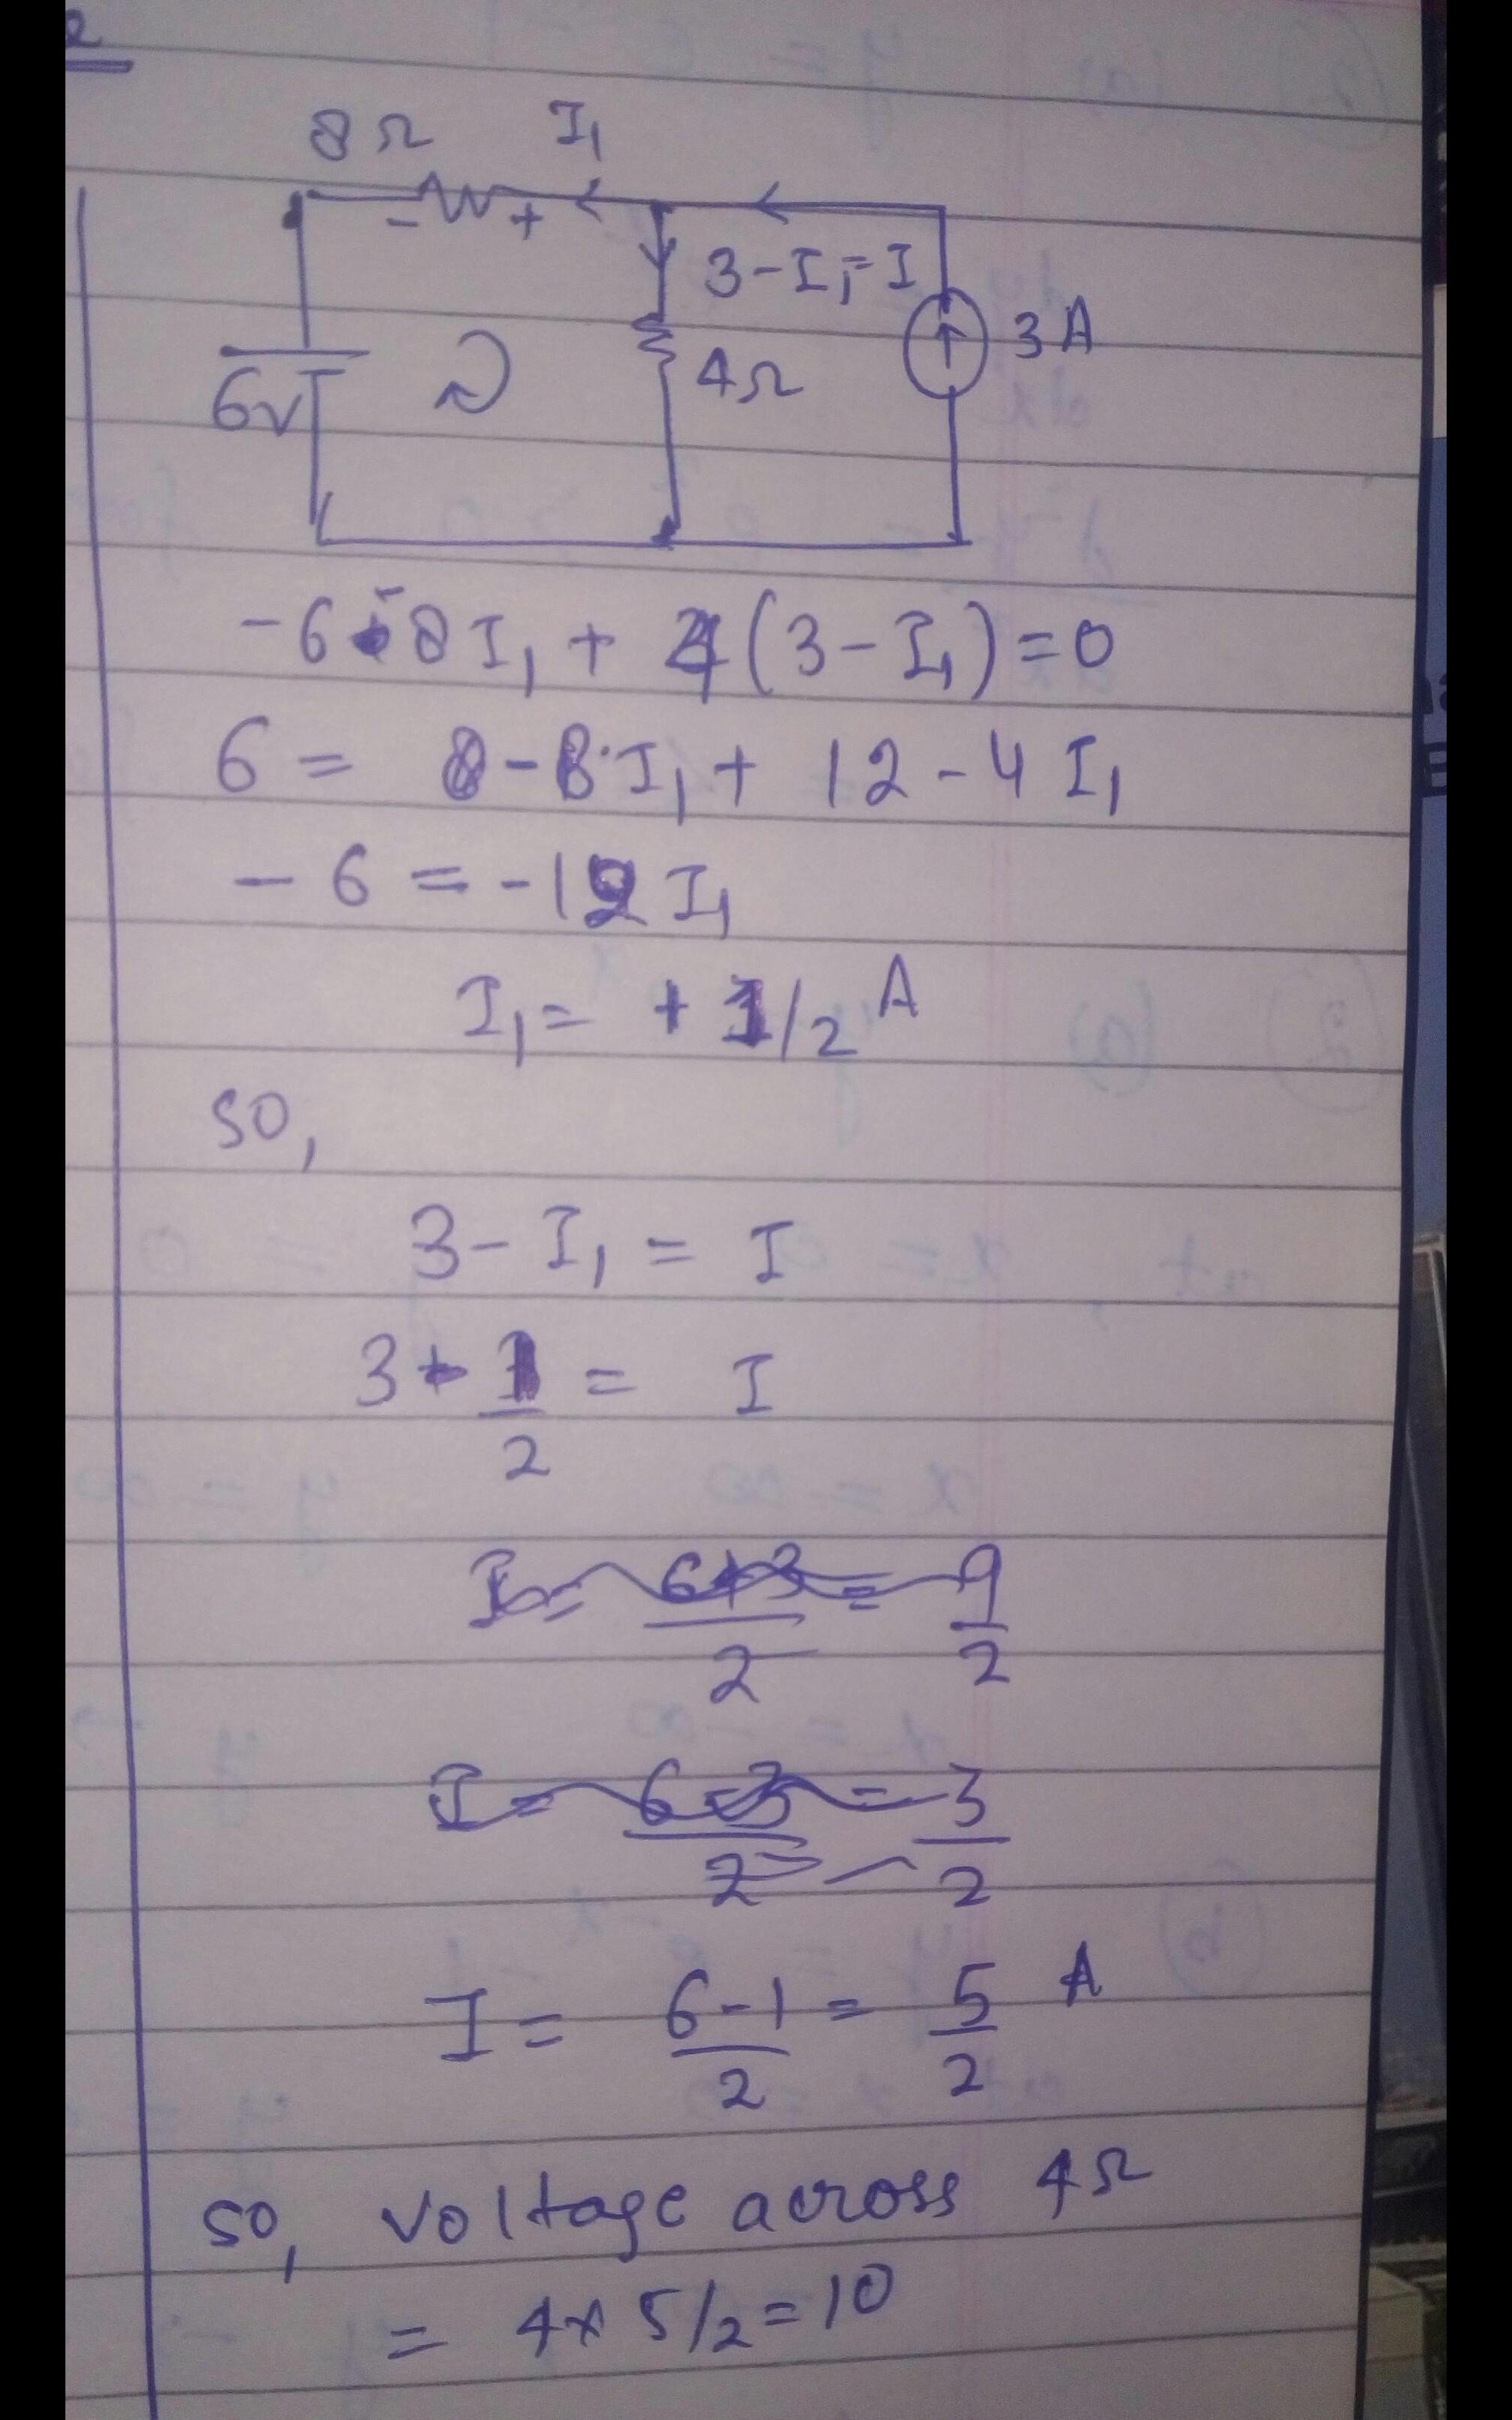 8Ω I₁
- +
3-I₁=I
3A
4Ω
6V
-6-8I₁ + 4(3-I₁)=0
6 = -8I₁ + 12-4I₁
-6 = -12I₁
I₁= +1/2 A
so,
3-I₁ = I
3-1/2 = I
I= (6+3)/2 = 9/2
I= (6-3)/2 = 3/2
I= (6-1)/2 = 5/2 A
so, voltage across 4Ω
= 4x5/2=10